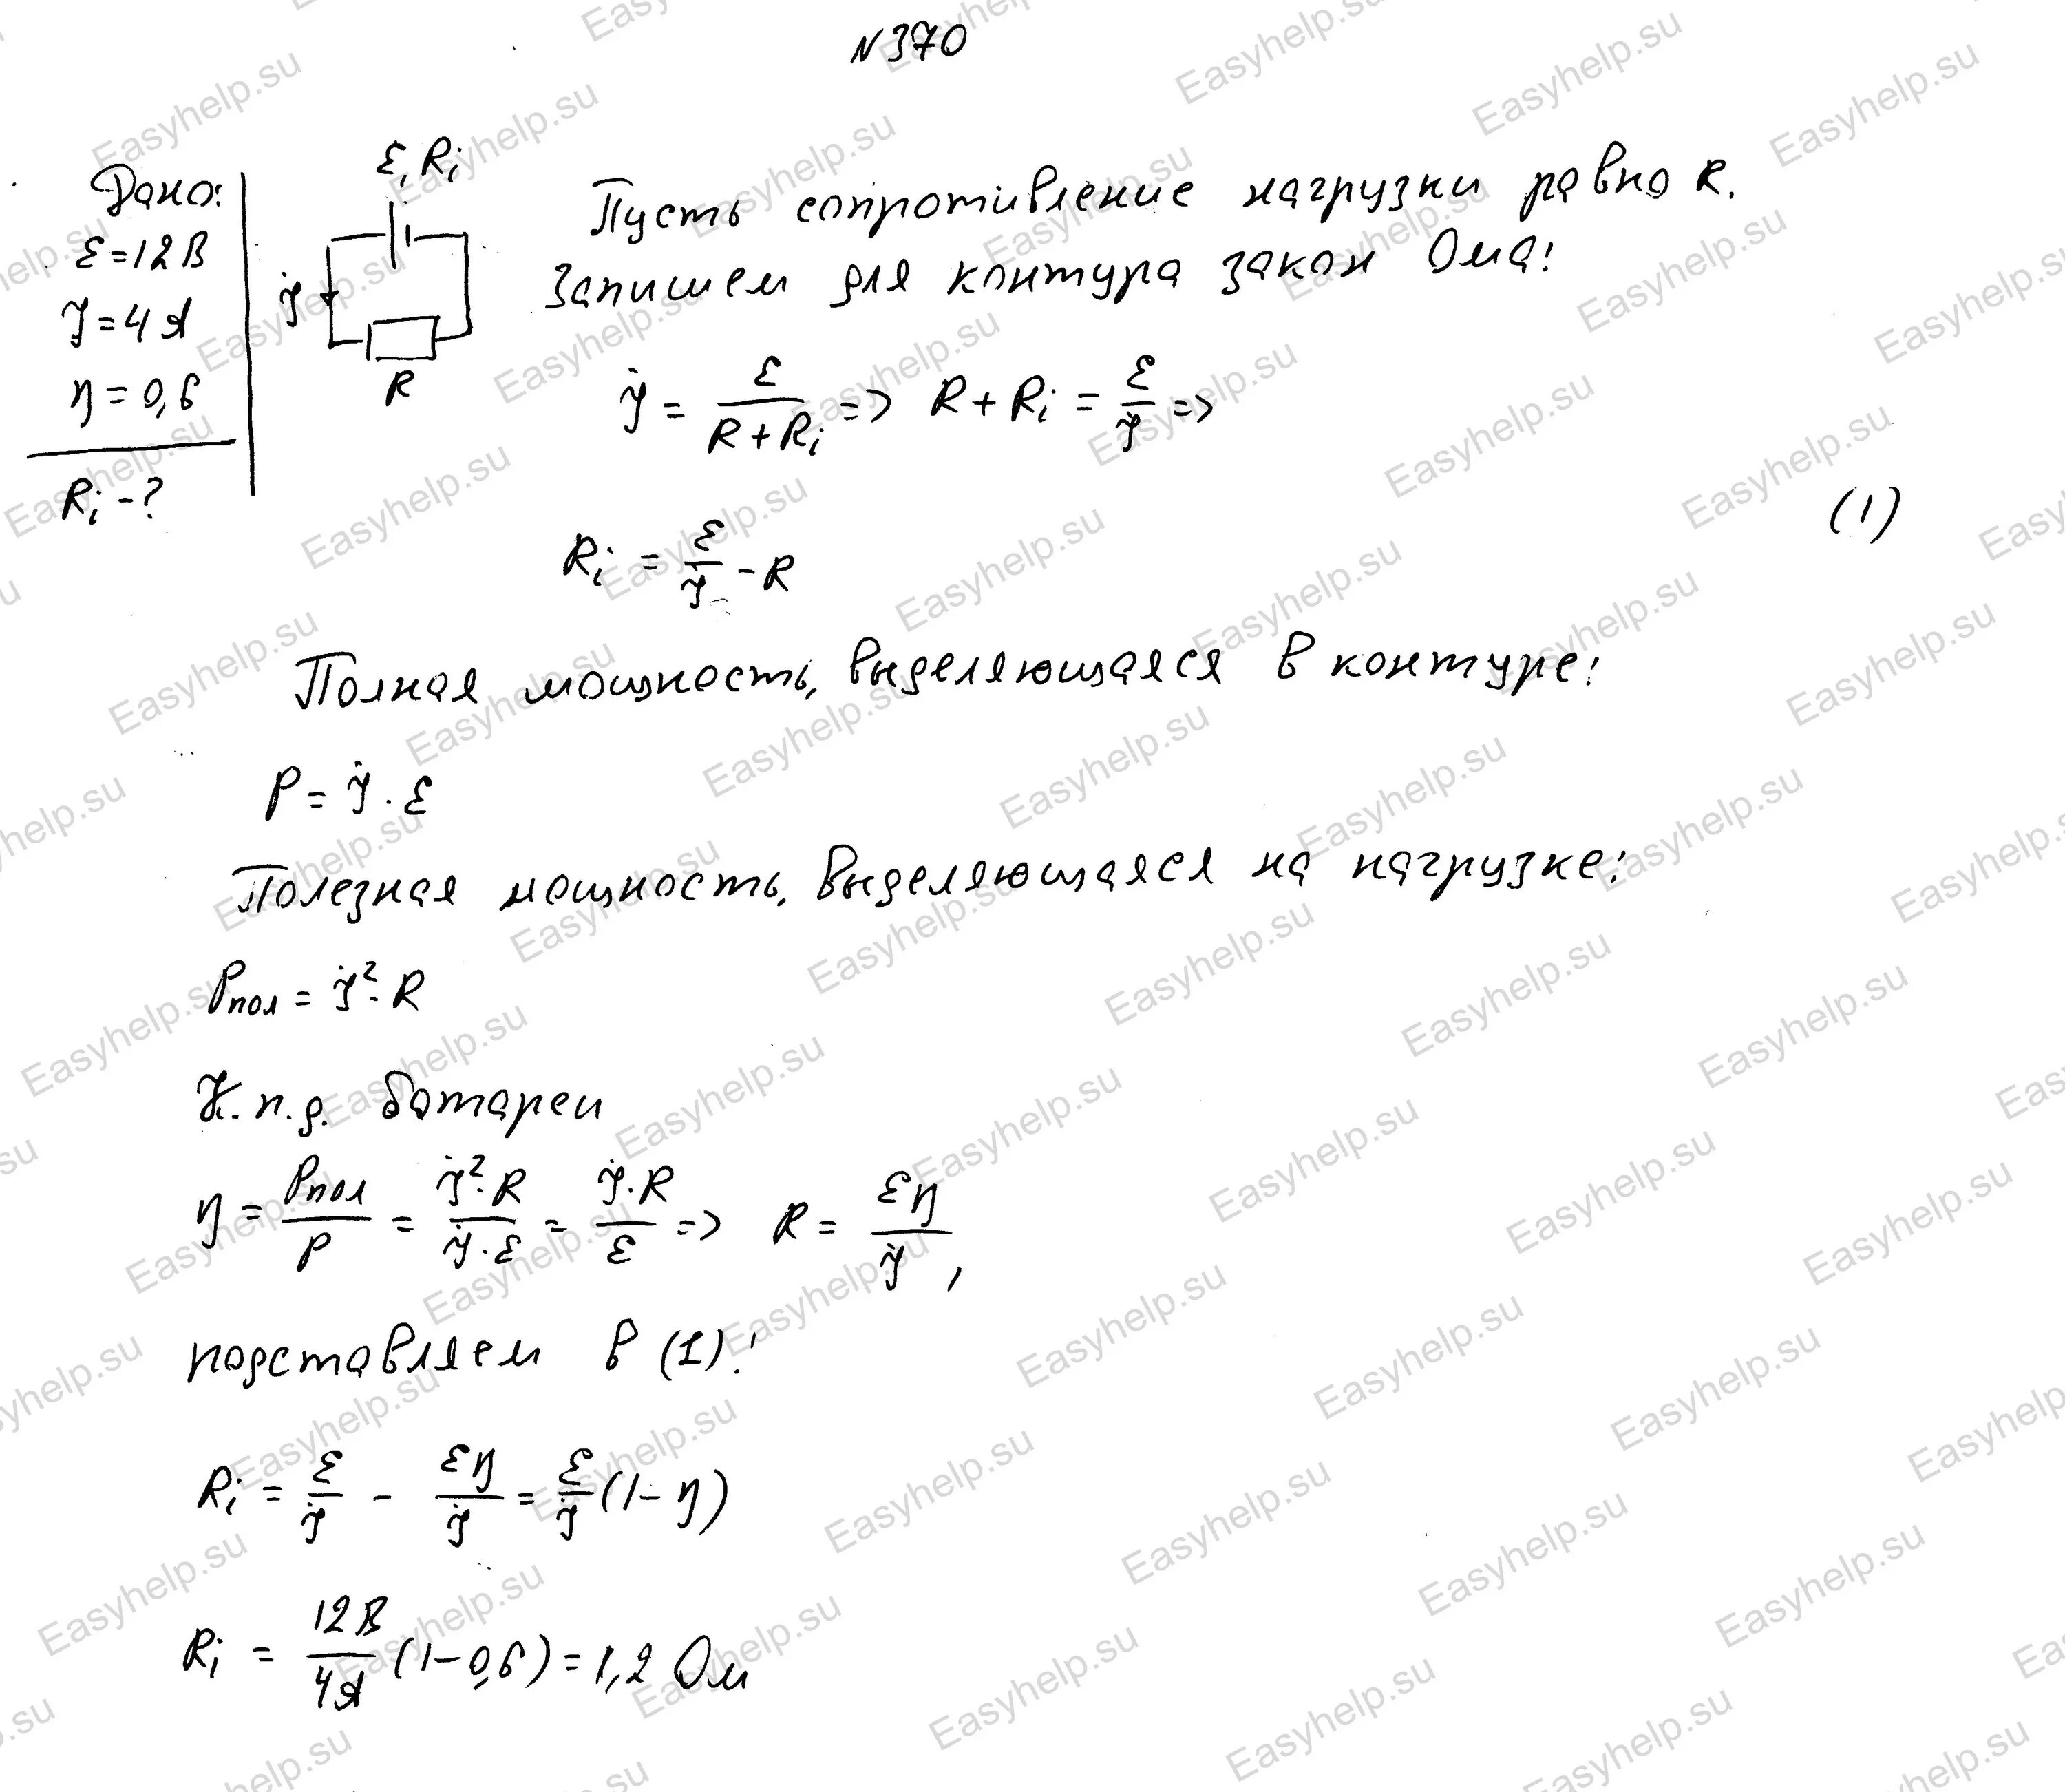 N 370
Дано:
ε = 12 В
J = 4 А
η = 0,6
Ri - ?
ε, Ri
J
R
Пусть сопротивление нагрузки равно R.
Запишем для контура закон Ома:
J = ε / (R + Ri) => R + Ri = ε / J =>
Ri = ε / J - R (1)
Полная мощность, выделяющаяся в контуре:
P = J · ε
Полезная мощность, выделяющаяся на нагрузке:
Pпол = J² · R
К.п.д. батареи
η = Pпол / P = J² · R / J · ε = J · R / ε => R = εη / J ,
подставляем в (1):
Ri = ε / J - εη / J = ε / J (1 - η)
Ri = 12 В / 4 А (1 - 0,6) = 1,2 Ом
Easyhelp.su